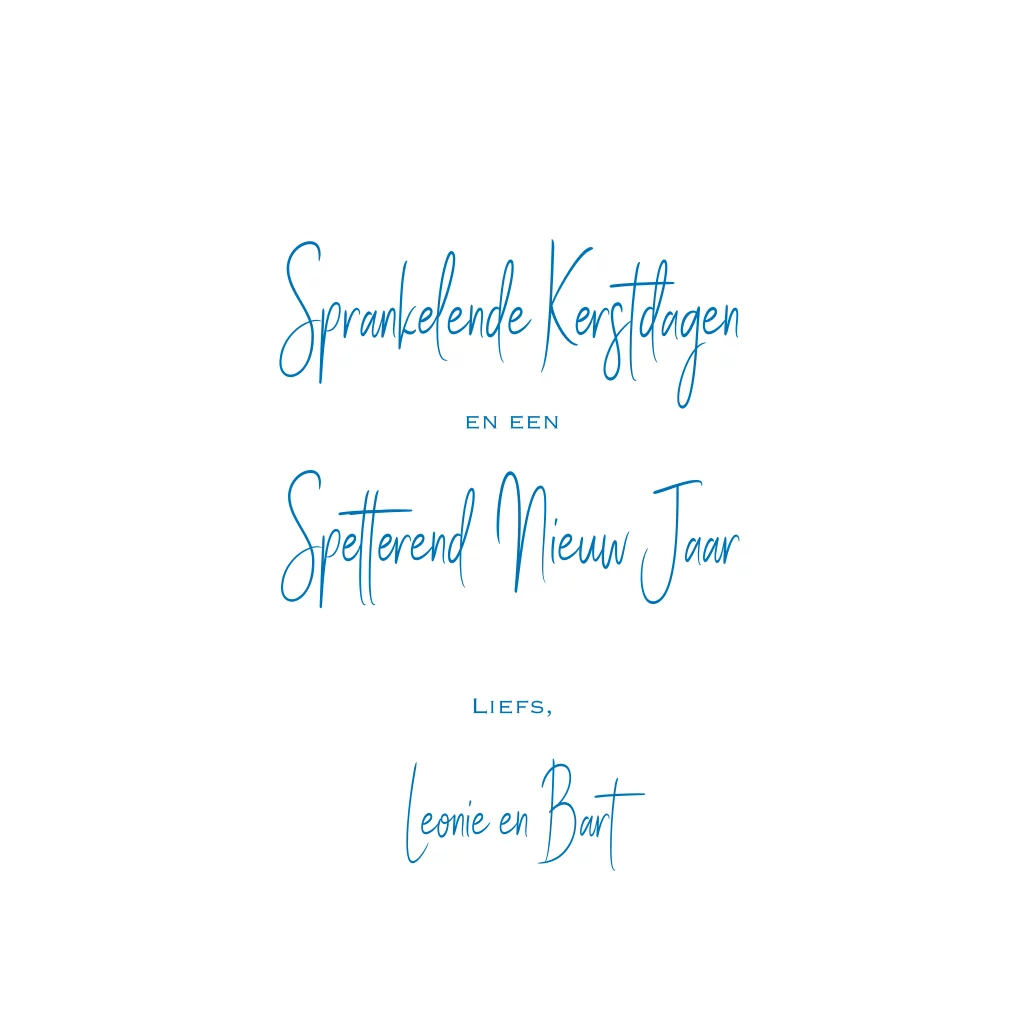 Sprankelende Kerstdagen
EN EEN
Spetterend Nieuw Jaar
LIEFS,
Leonie en Bart